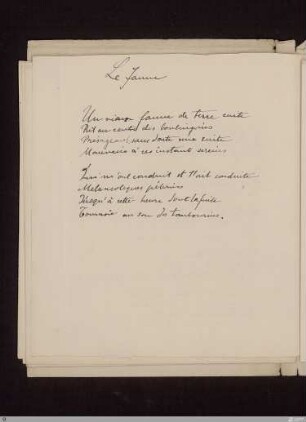 Le faune
Un vieux faune de terre cuite
Rit au centre des boulingrins
Présageant sans doute une suite
Mauvaise à ces instants sereins
Qui m'ont conduit et t'ont conduite
Mélancoliques pèlerins
Jusqu'à cette heure dont la fuite
Tournoie au son des tambourins.